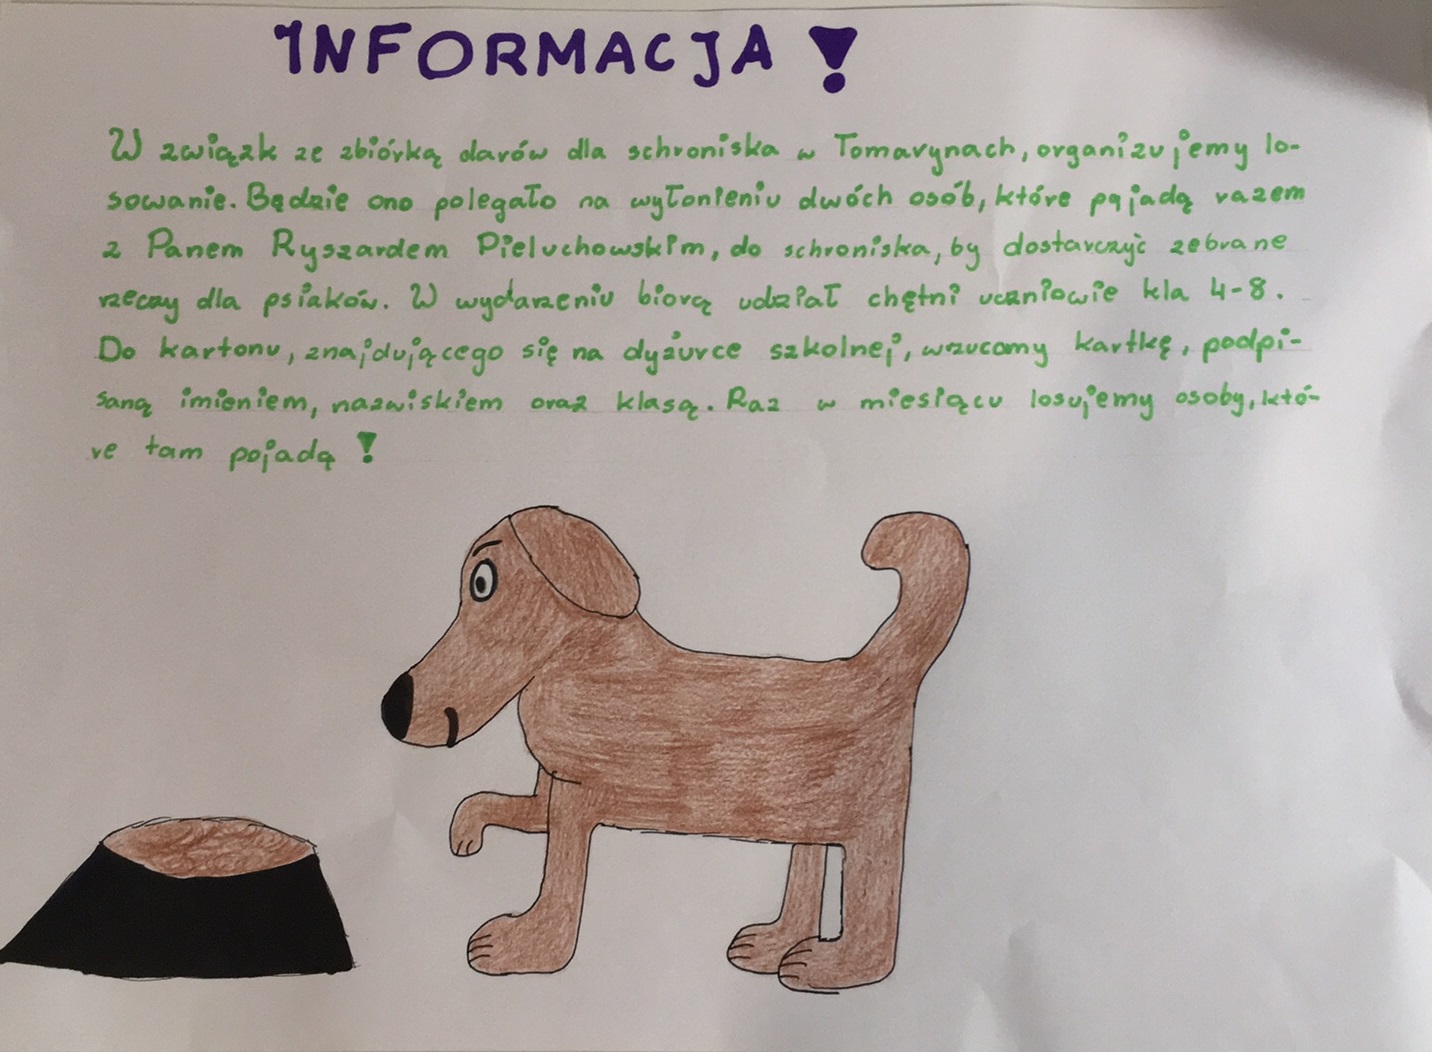 INFORMACJA !
W związk ze zbiórką darów dla schroniska w Tomarynach, organizujemy lo-
sowanie. Będzie ono polegało na wyłonieniu dwóch osób, które pojadą razem
z Panem Ryszardem Pieluchowskim, do schroniska, by dostarczyć zebrane
rzeczy dla psiaków. W wydarzeniu biorą udział chętni uczniowie kla 4-8.
Do kartonu, znajdującego się na dyżurce szkolnej, wrzucamy kartkę, podpi-
saną imieniem, nazwiskiem oraz klasą. Raz w miesiącu losujemy osoby, któ-
re tam pojadą !